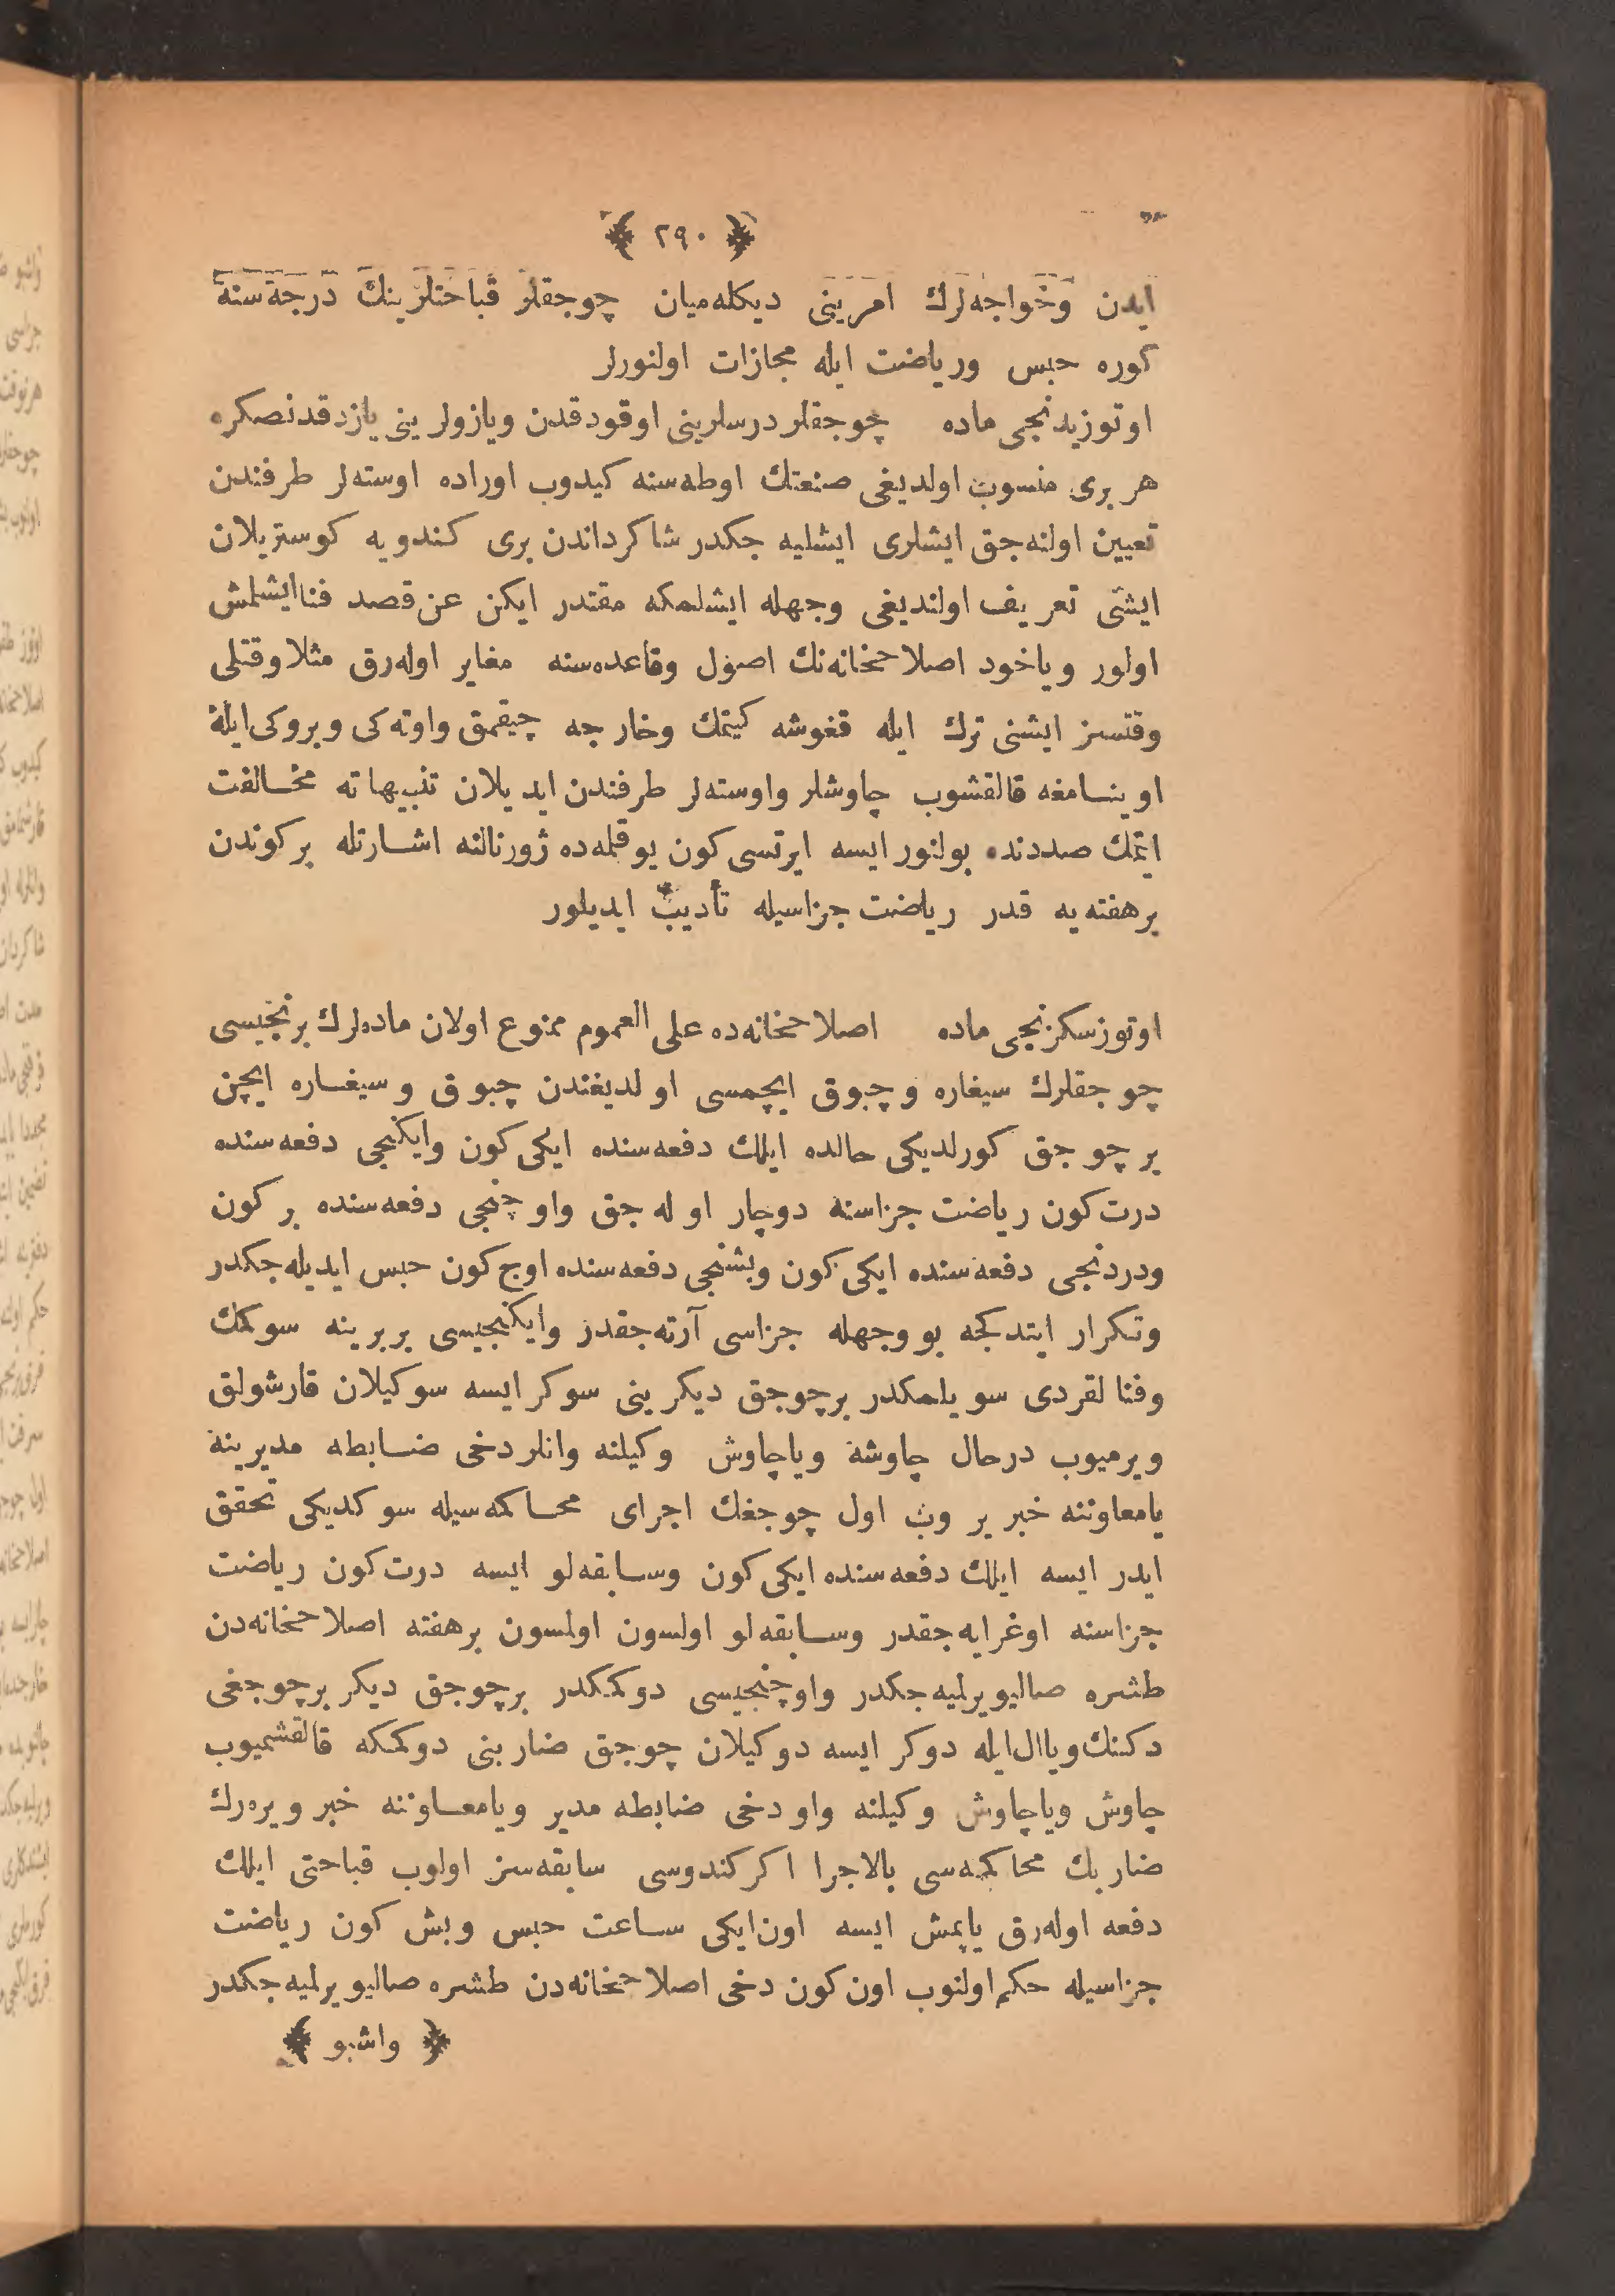 ﴿ ٢٩٠ ﴾
ايدن وخواجه‌لرك امرينى ديكله‌ميان چوجقلر قباحتلرينك درجه‌سنه
كوره حبس ورياضت ايله مجازات اولنورلر
اوتوزيدنجى ماده چوجقلر درسلرينى اوقودقدن ويازولرينى يازدقدنصكره
هر برى منسوب اولديغى صنعتك اوطه‌سنه كيدوب اوراده اوسته‌لر طرفندن
تعيين اولنه‌جق ايشلرى ايشليه جكدر شاكرداندن برى كندويه كوستريلان
ايشى تعريف اولنديغى وجهله ايشلمكه مقتدر ايكن عن قصد فنا ايشلمش
اولور وياخود اصلاحخانه‌نك اصول وقاعده‌سنه مغاير اوله‌رق مثلا وقتلى
وقتسز ايشنى ترك ايله قغوشه كيتمك وخارجه چيقمق واوته‌كى وبروكى ايله
اوينامغه قالقشوب چاوشلر واوسته‌لر طرفندن ايديلان تنبيهاته مخالفت
ايتمك صددنده بولنور ايسه ايرتسى كون يوقلمه‌ده ژورنالنه اشارتله بر كوندن
بر هفته‌يه قدر رياضت جزاسيله تأديب ايديلور
اوتوزسكزنجى ماده اصلاحخانه‌ده على العموم ممنوع اولان ماده‌لرك برنجيسى
چوجقلرك سيغاره وچبوق ايچمسى اولديغندن چبوق وسيغاره ايچن
بر چوجق كورلديكى حالده ايلك دفعه‌سنده ايكى كون وايكنجى دفعه‌سنده
درت كون رياضت جزاسنه دوچار اوله جق واوچنجى دفعه‌سنده بر كون
ودردنجى دفعه‌سنده ايكى كون وبشنجى دفعه‌سنده اوچ كون حبس ايديله‌جكدر
وتكرار ايتدكجه بو وجهله جزاسى آرته‌جقدر وايكنجيسى بربرينه سوكمك
وفنا لقردى سويلمكدر بر چوجق ديكرينى سوكر ايسه سوكيلان قارشولق
ويرميوب درحال چاوشه وياچاوش وكيلنه وانلر دخى ضابطه مديرينه
يامعاوننه خبر يروب اول چوجغك اجراى محاكمه‌سيله سوكديكى تحقق
ايدر ايسه ايلك دفعه‌سنده ايكى كون وسابقه‌لو ايسه درت كون رياضت
جزاسنه اوغرايه‌جقدر وسابقه‌لو اولسون اولمسون بر هفته اصلاحخانه‌دن
طشره صاليويرلميه‌جكدر واوچنجيسى دوكمكدر بر چوجق ديكر بر چوجغى
دكنك ويا ال ايله دوكر ايسه دوكيلان چوجق ضاربنى دوكمكه قالقشميوب
چاوش وياچاوش وكيلنه واو دخى ضابطه مدير ويامعاوننه خبر ويره‌رك
ضاربك محاكمه‌سى بالاجرا اكر كندوسى سابقه‌سز اولوب قباحتى ايلك
دفعه اوله‌رق ياپمش ايسه اون ايكى ساعت حبس وبش كون رياضت
جزاسيله حكم اولنوب اون كون دخى اصلاحخانه‌دن طشره صاليويرلميه‌جكدر
﴿ واشبو ﴾